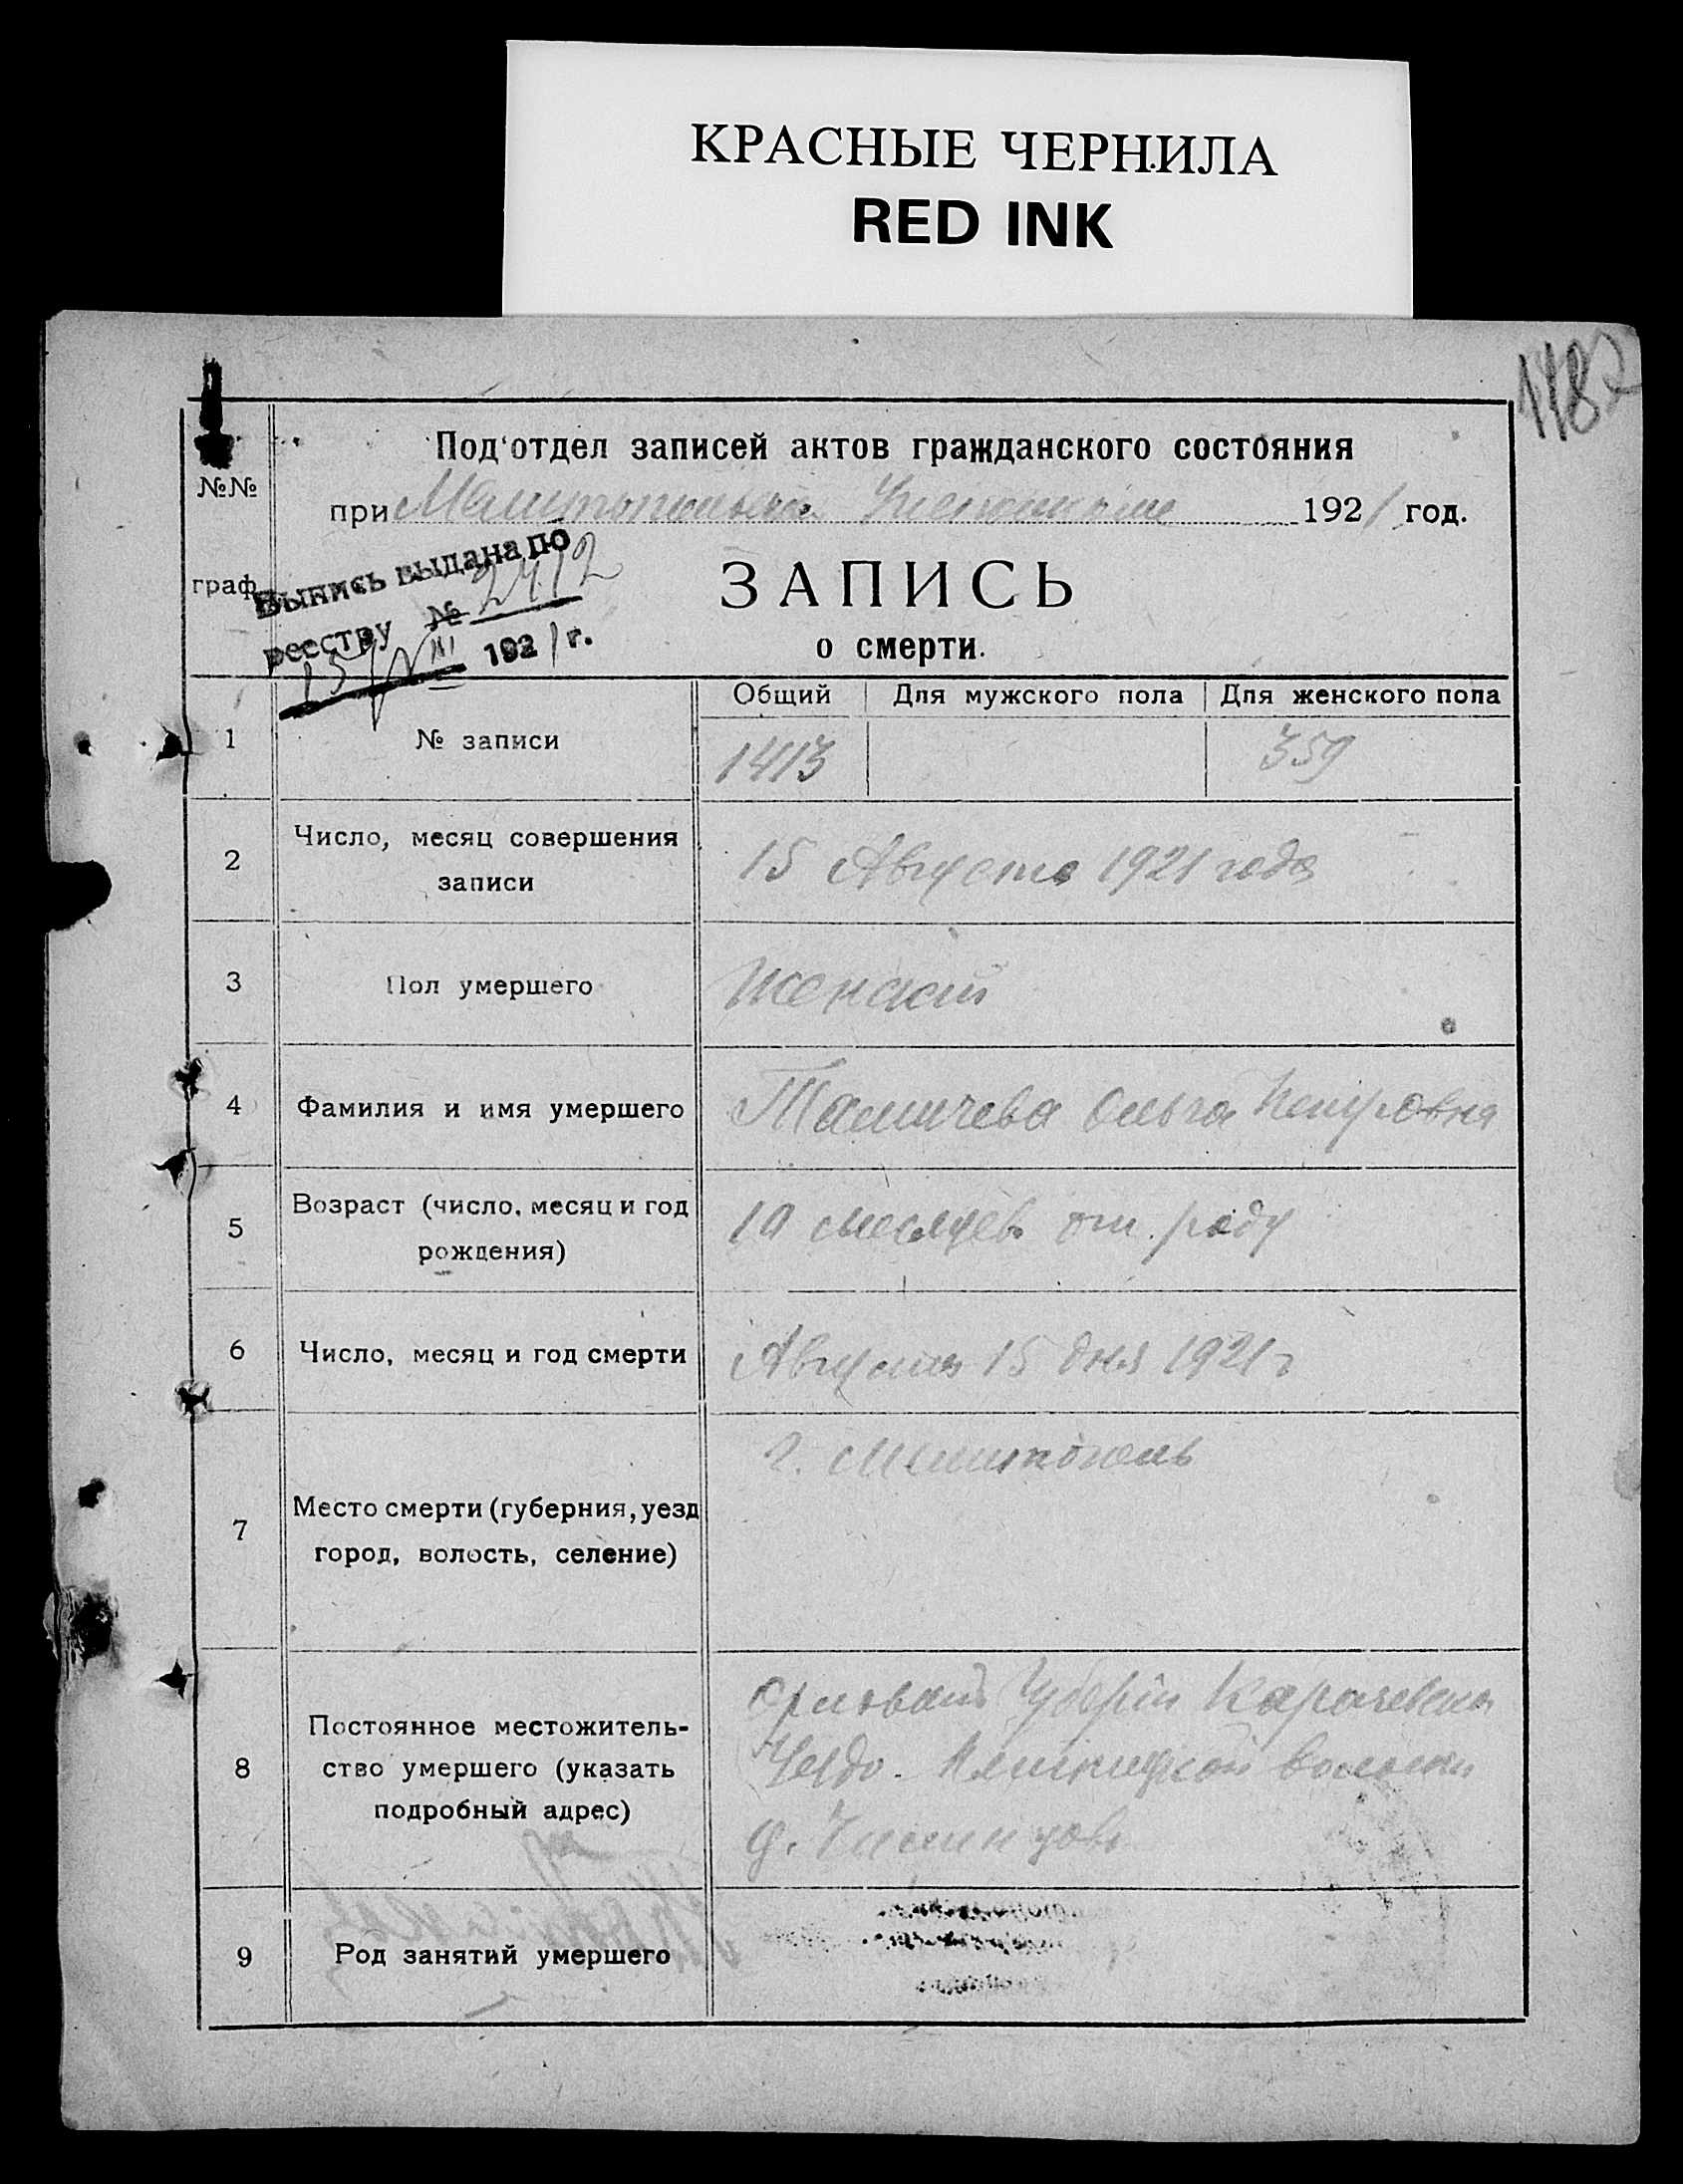 КРАСНЫЕ ЧЕРНИЛА
RED INK
1482
Подотдел записей актов гражданского состояния
№№
при 1921 год.
граф
Выпись выдана по
реестру № 2412
15/VIII 1921 г.
ЗАПИСЬ
о смерти.
Общий Для мужского пола Для женского пола
1 № записи 1413 359
2 Число, месяц совершения
записи
15 Августа 1921 года
3 Пол умершего Женский
4 Фамилия и имя умершего Ольга Петровна
5 Возраст (число, месяц и год
рождения)
месяцев от роду
6 Число, месяц и год смерти Августа 15 дня 1921 г
7 Место смерти (губерния, уезд
город, волость, селение)
г. Мелитополь
8 Постоянное местожитель-
ство умершего (указать
подробный адрес)
Орловской Губернии Карачевского
Уезда. волости
9 Род занятий умершего